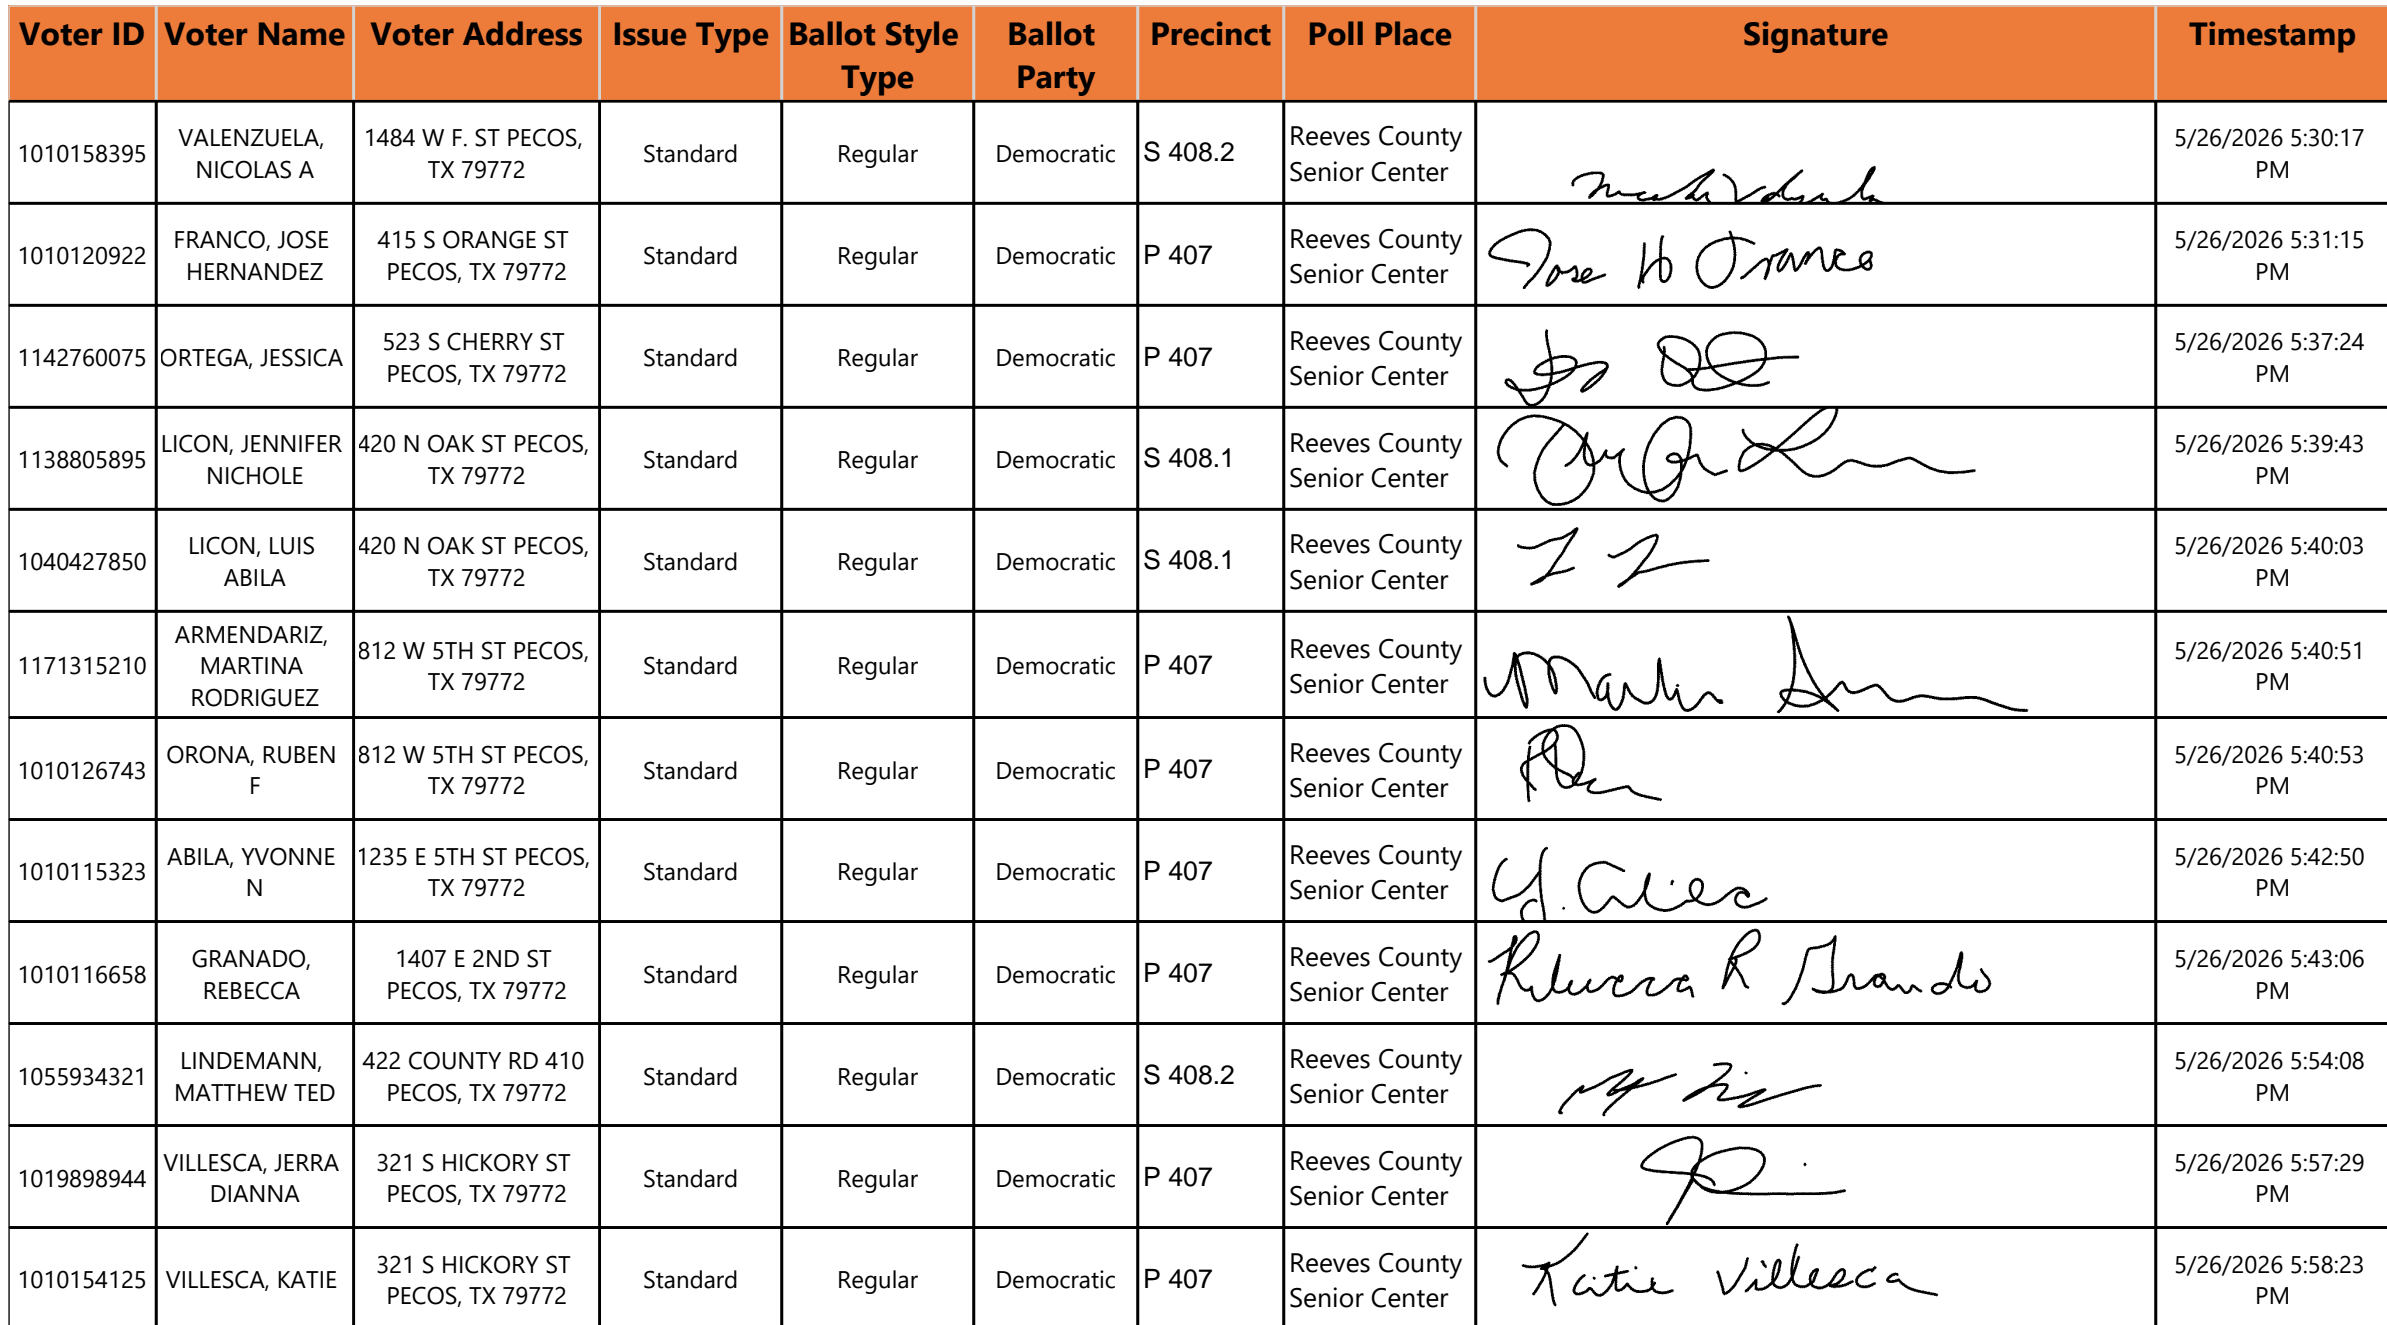 Voter ID Voter Name Voter Address Issue Type Ballot Style Type Ballot Party Precinct Poll Place Signature Timestamp
1010158395 VALENZUELA, NICOLAS A 1484 W F. ST PECOS, TX 79772 Standard Regular Democratic S 408.2 Reeves County Senior Center 5/26/2026 5:30:17 PM
1010120922 FRANCO, JOSE HERNANDEZ 415 S ORANGE ST PECOS, TX 79772 Standard Regular Democratic P 407 Reeves County Senior Center Jose H Franco 5/26/2026 5:31:15 PM
1142760075 ORTEGA, JESSICA 523 S CHERRY ST PECOS, TX 79772 Standard Regular Democratic P 407 Reeves County Senior Center 5/26/2026 5:37:24 PM
1138805895 LICON, JENNIFER NICHOLE 420 N OAK ST PECOS, TX 79772 Standard Regular Democratic S 408.1 Reeves County Senior Center 5/26/2026 5:39:43 PM
1040427850 LICON, LUIS ABILA 420 N OAK ST PECOS, TX 79772 Standard Regular Democratic S 408.1 Reeves County Senior Center 5/26/2026 5:40:03 PM
1171315210 ARMENDARIZ, MARTINA RODRIGUEZ 812 W 5TH ST PECOS, TX 79772 Standard Regular Democratic P 407 Reeves County Senior Center 5/26/2026 5:40:51 PM
1010126743 ORONA, RUBEN F 812 W 5TH ST PECOS, TX 79772 Standard Regular Democratic P 407 Reeves County Senior Center 5/26/2026 5:40:53 PM
1010115323 ABILA, YVONNE N 1235 E 5TH ST PECOS, TX 79772 Standard Regular Democratic P 407 Reeves County Senior Center Y. Abila 5/26/2026 5:42:50 PM
1010116658 GRANADO, REBECCA 1407 E 2ND ST PECOS, TX 79772 Standard Regular Democratic P 407 Reeves County Senior Center Rebecca R Granado 5/26/2026 5:43:06 PM
1055934321 LINDEMANN, MATTHEW TED 422 COUNTY RD 410 PECOS, TX 79772 Standard Regular Democratic S 408.2 Reeves County Senior Center 5/26/2026 5:54:08 PM
1019898944 VILLESCA, JERRA DIANNA 321 S HICKORY ST PECOS, TX 79772 Standard Regular Democratic P 407 Reeves County Senior Center 5/26/2026 5:57:29 PM
1010154125 VILLESCA, KATIE 321 S HICKORY ST PECOS, TX 79772 Standard Regular Democratic P 407 Reeves County Senior Center Katie Villesca 5/26/2026 5:58:23 PM